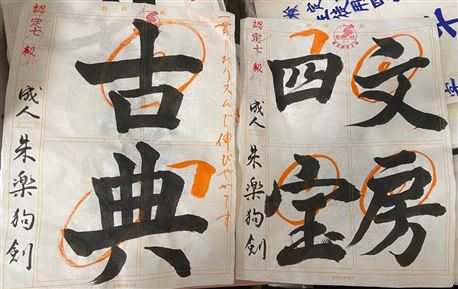 文房
四宝
認定七級
成人 朱楽狗剣
一貫したリズムで伸びやかです
古典
認定七級
成人 朱楽狗剣